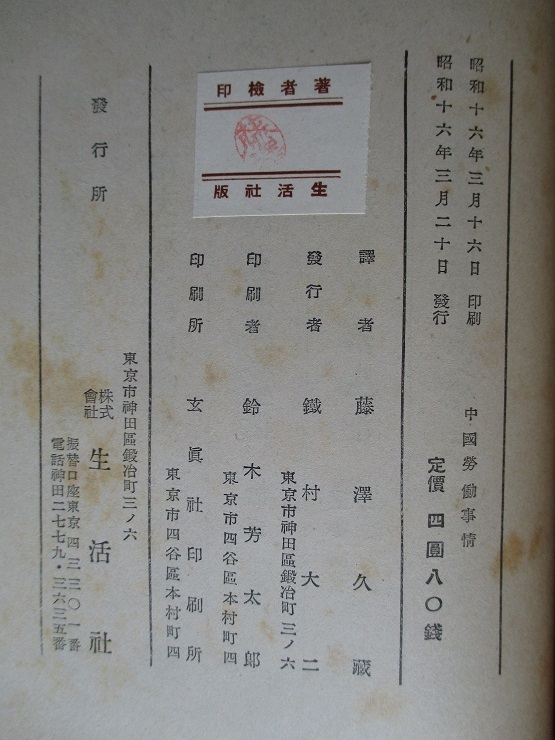 昭和十六年三月十六日 印刷
昭和十六年三月二十日 發行
中國勞働事情
定價 四圓八〇錢
著者檢印
生活社版
譯者 藤澤久藏
發行者 鐵村大二
東京市神田區鍛冶町三ノ六
印刷者 鈴木芳太郎
東京市四谷區本村町四
印刷所 玄眞社印刷所
東京市四谷區本村町四
發行所
東京市神田區鍛冶町三ノ六
株式會社 生活社
振替口座東京四三三〇一番
電話神田二七七九・三六三五番